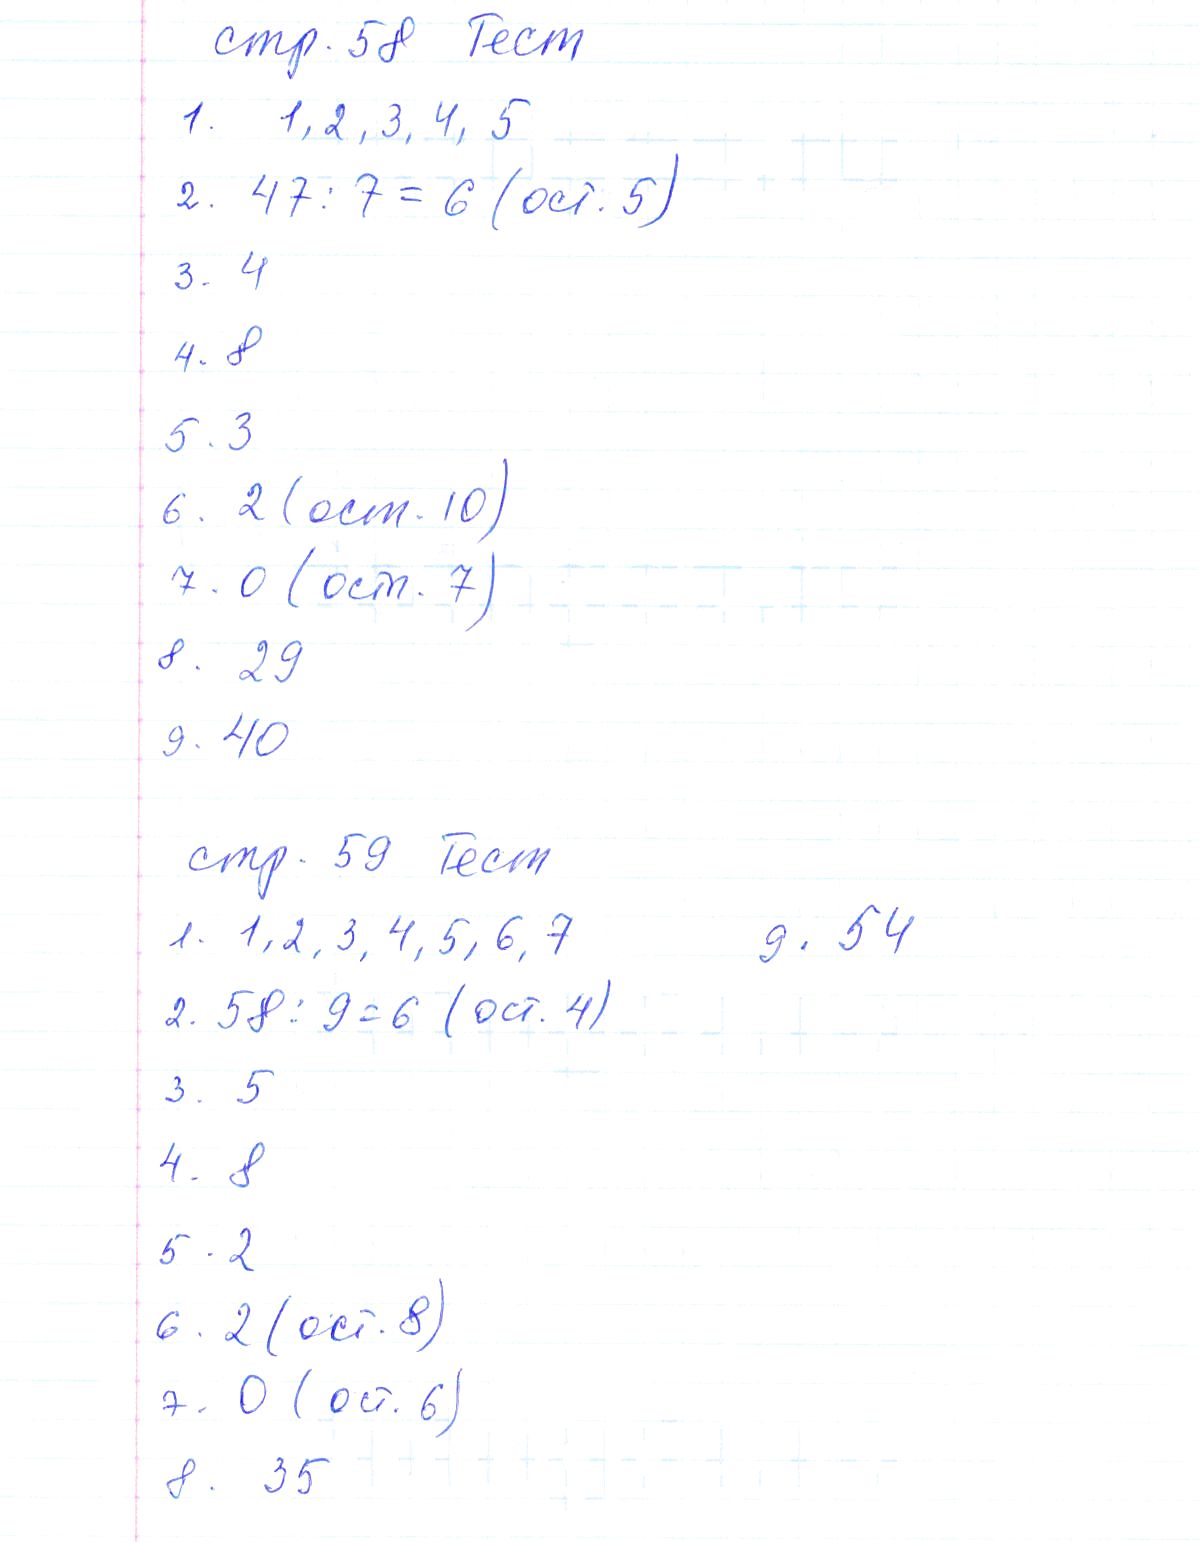 стр. 58 Тест
1. 1, 2, 3, 4, 5
2. 47 : 7 = 6 (ост. 5)
3. 4
4. 8
5. 3
6. 2 (ост. 10)
7. 0 (ост. 7)
8. 29
9. 40
стр. 59 Тест
1. 1, 2, 3, 4, 5, 6, 7
2. 58 : 9 = 6 (ост. 4)
3. 5
4. 8
5. 2
6. 2 (ост. 8)
7. 0 (ост. 6)
8. 35
9. 54